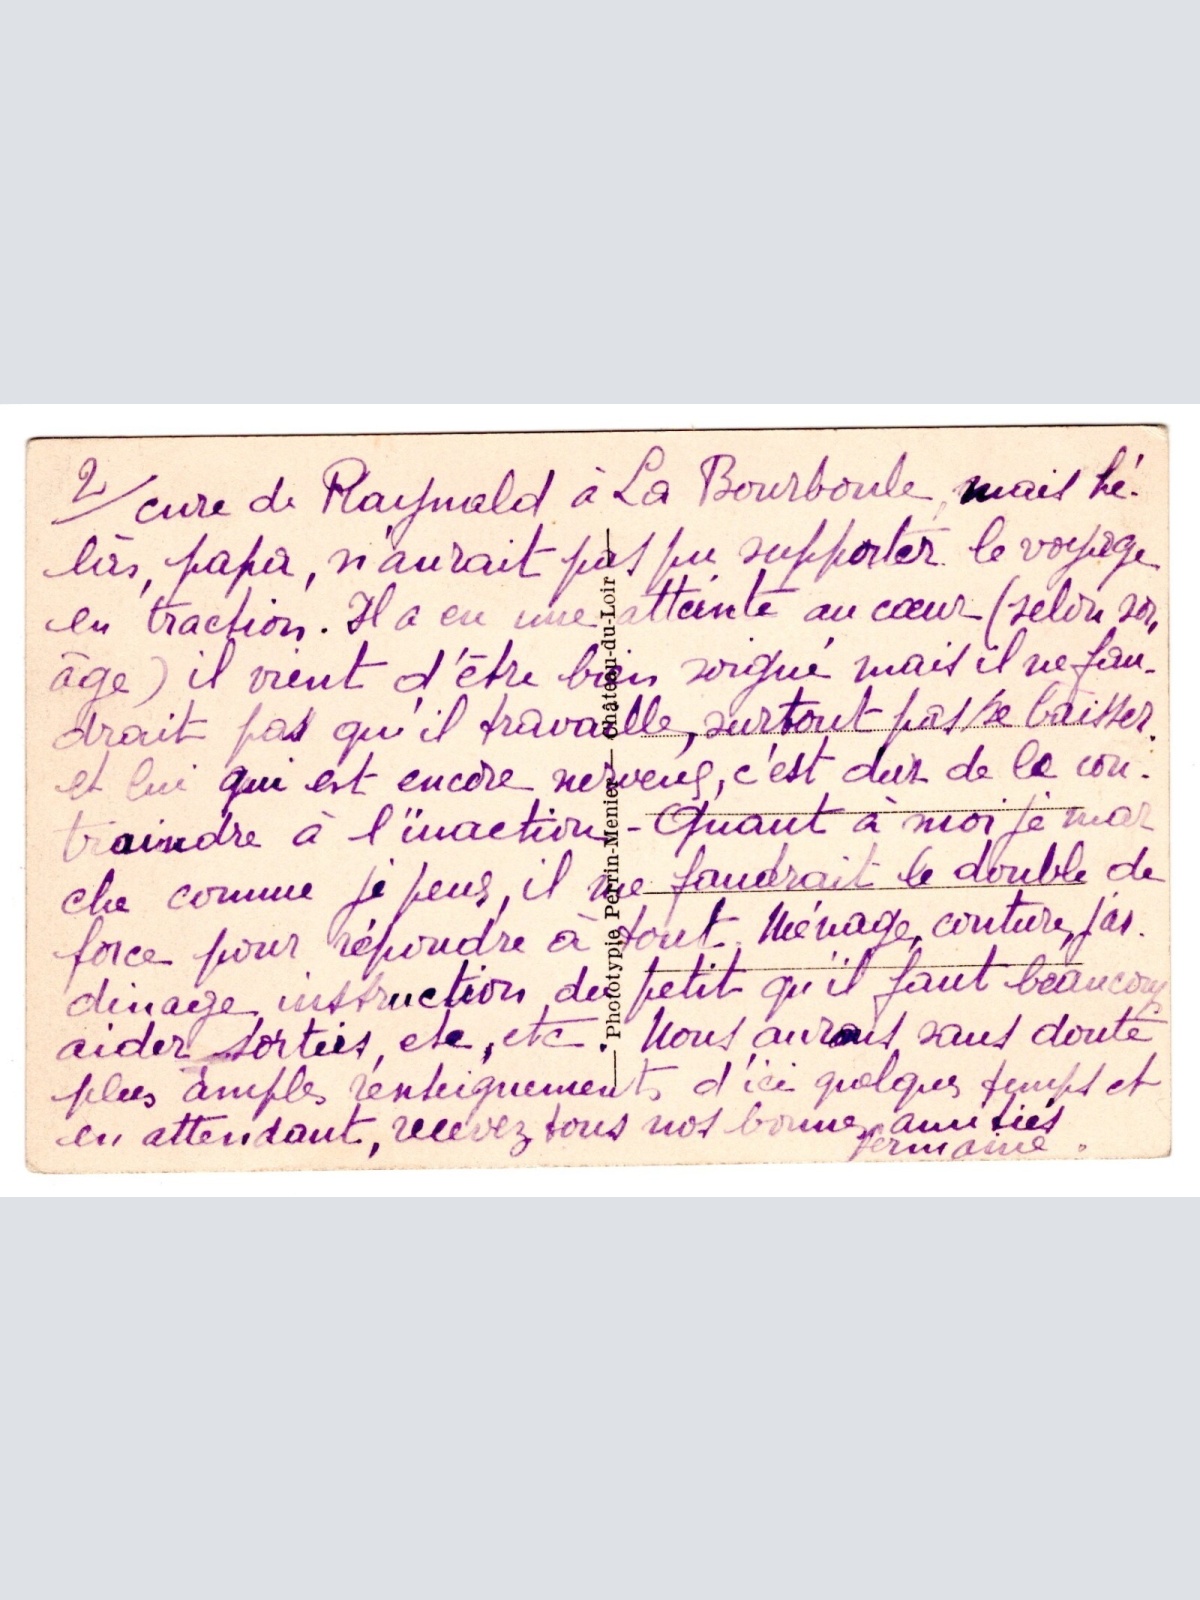 2/ cure de Raynald à La Bourboule, mais hé-
las, papa, n'aurait pas pu supporter le voyage
en traction. Il a eu une atteinte au cœur (selon son
âge) il vient d'être bien soigné mais il ne fau-
drait pas qu'il travaille, surtout pas se baisser.
et lui qui est encore nerveux, c'est dur de le con-
traindre à l'inaction - Quant à moi je mar
che comme je peux, il me faudrait le double de
force pour répondre à tout. Ménage, couture, jar-
dinage, instruction du petit qu'il faut beaucoup
aider sorties, etc, etc. Nous aurons sans doute
plus amples renseignements d'ici quelques temps et
en attendant, recevez tous nos bonnes amitiés
Germaine.
Phototypie Perrin-Menier — Château-du-Loir